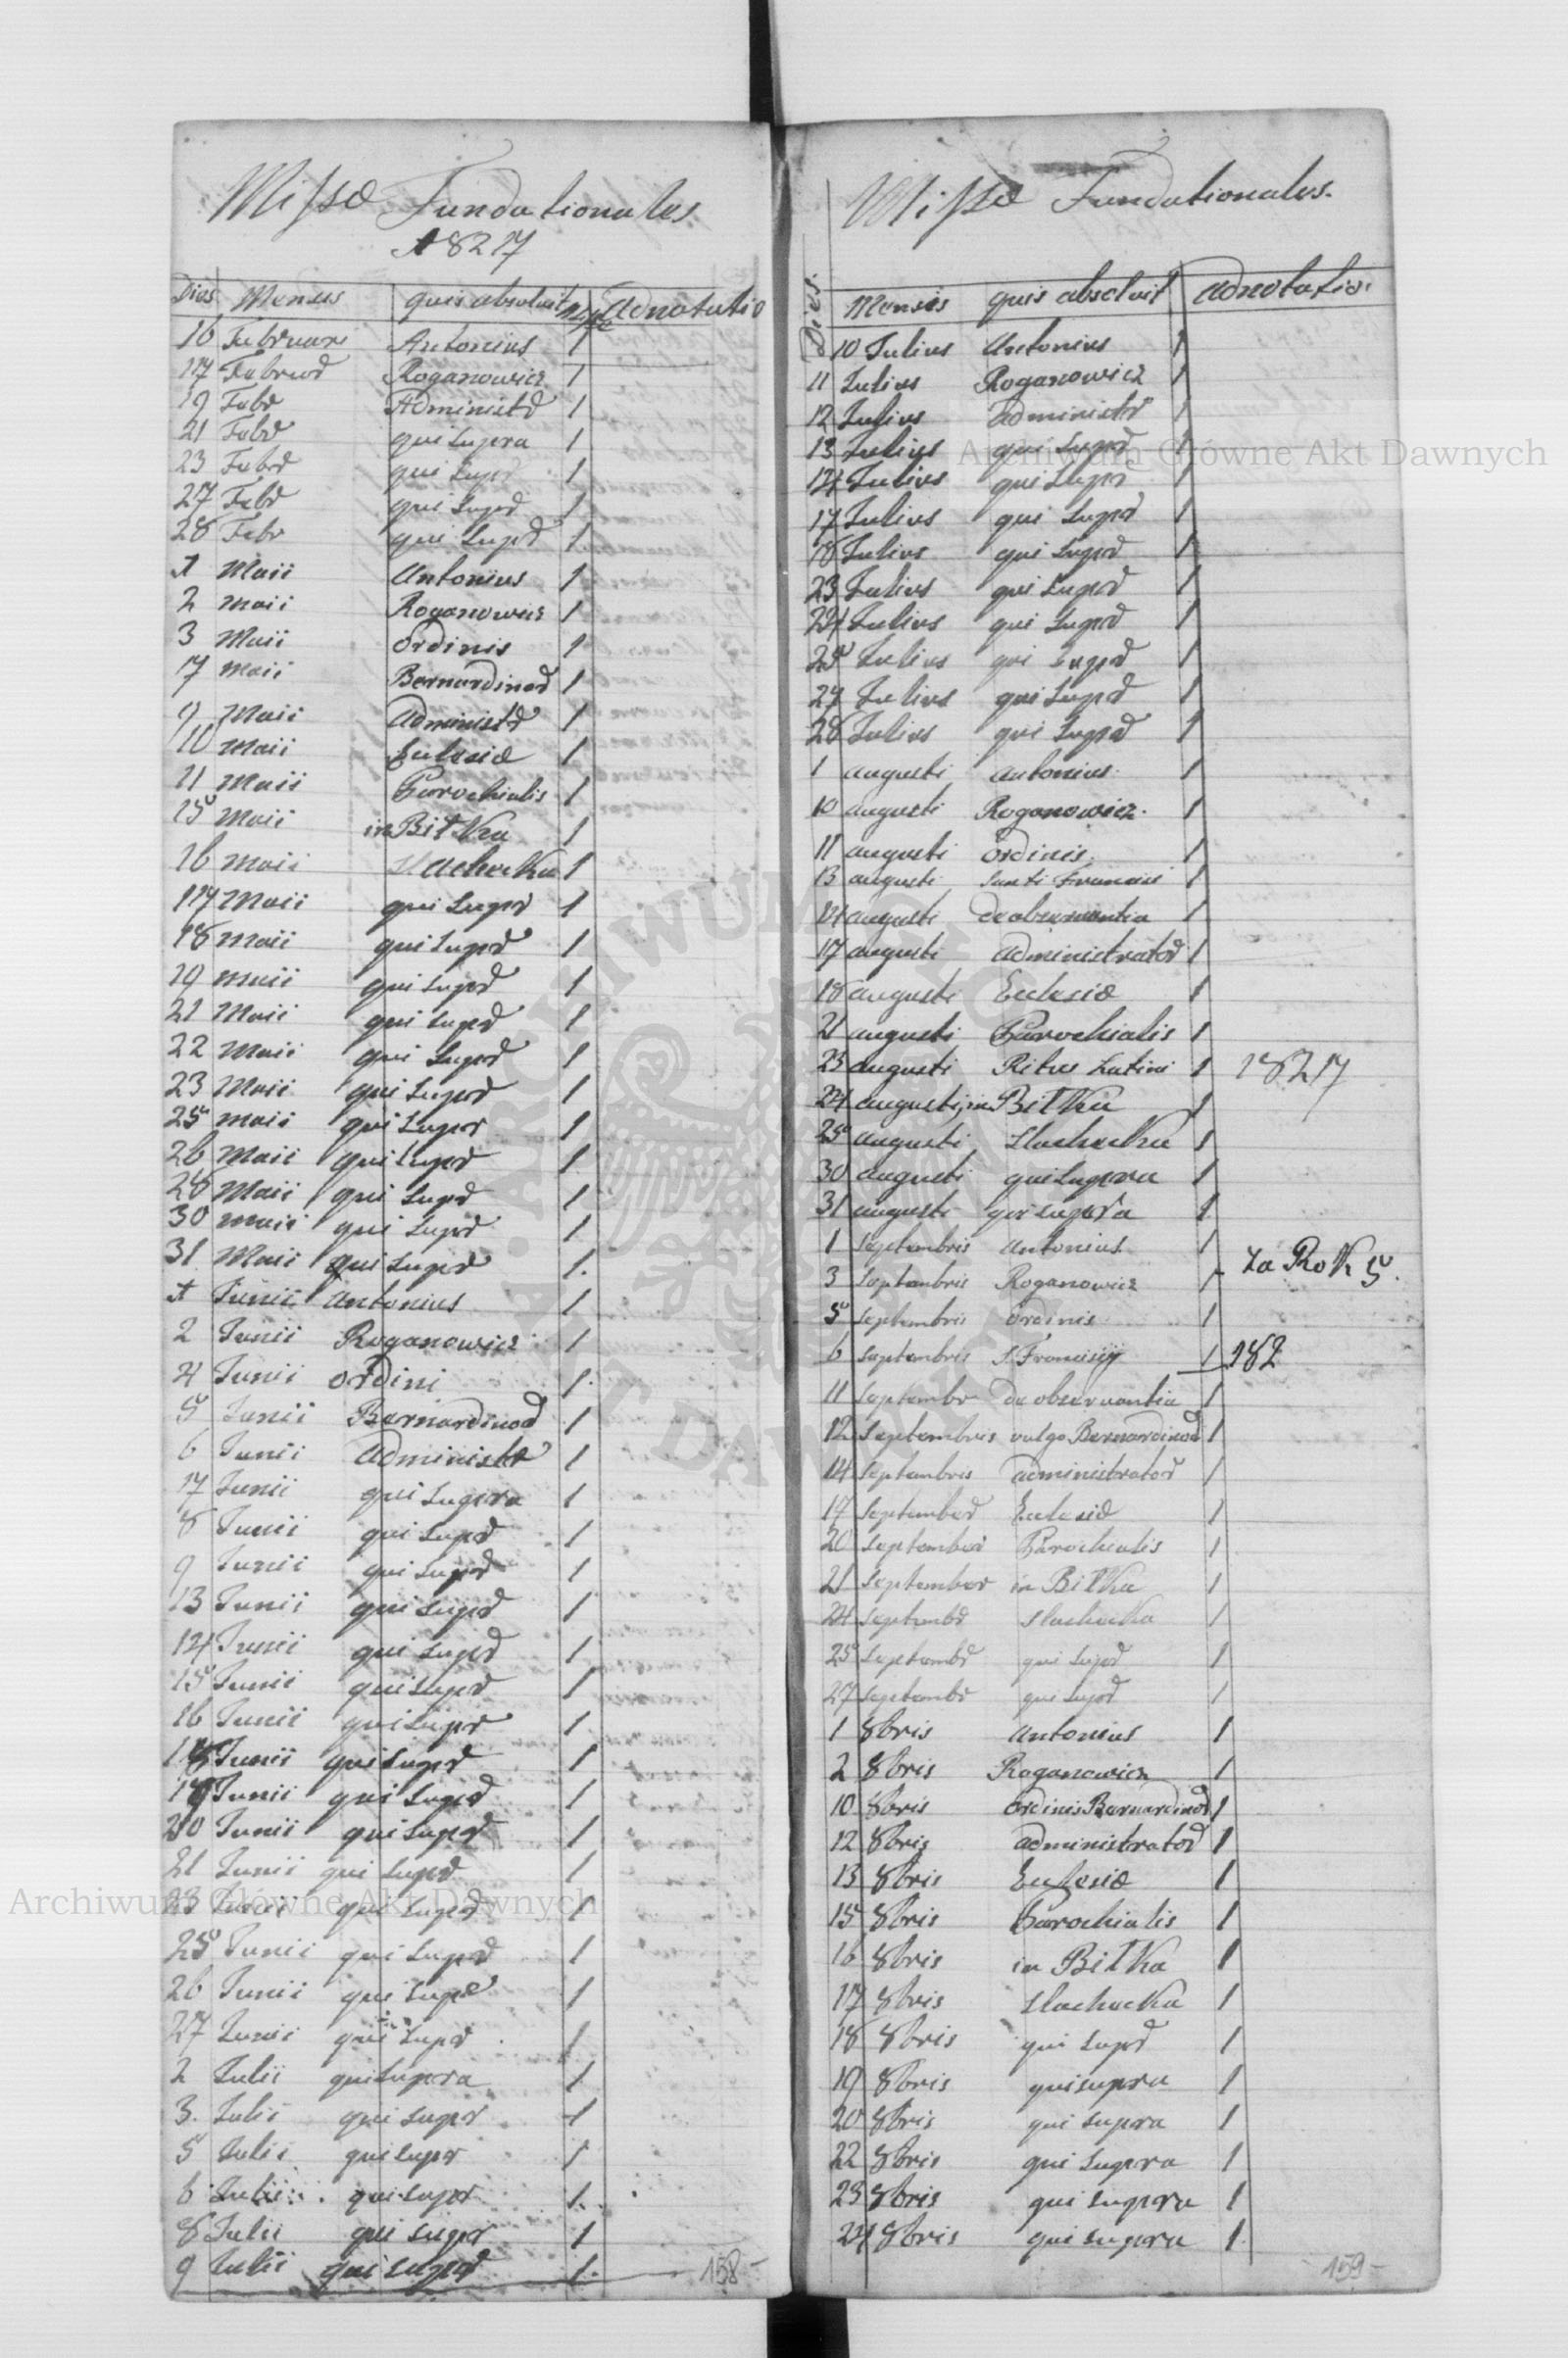 Missæ Fundationales
1827
Dies Mensis quis absolvit Adnotatio
16 Februari Antonius 1
17 Februar Roganowicz 1
19 Febr Administr 1
21 Febr qui supra 1
23 Febr qui supr 1
27 Febr qui supr 1
28 Febr qui supr 1
1 Maii Antonius 1
2 Maii Roganowicz 1
3 Maii Ordinis 1
7 Maii Bernardinor 1
9 Maii Administr 1
10 Maii Eclesiæ 1
11 Maii Parochialis 1
15 Maii in Bitka 1
16 Maii Slachecka 1
17 Maii qui supr 1
18 Maii qui supr 1
19 Maii qui supr 1
21 Maii qui supr 1
22 Maii qui supr 1
23 Maii qui supr 1
25 Maii qui supr 1
26 Maii qui supr 1
28 Maii qui supr 1
30 Maii qui supr 1
31 Maii qui supr 1.
1 Junii Antonius 1
2 Junii Roganowicz 1
4 Junii Ordini 1.
5 Junii Bernardinor 1
6 Junii Administr 1
7 Junii qui supra 1
8 Junii qui supr 1
9 Junii qui supr 1
13 Junii qui supr 1
14 Junii qui supr 1
15 Junii qui supr 1
16 Junii qui supr 1
18 Junii qui supr 1
19 Junii qui supr 1
20 Junii qui supr 1
21 Junii qui supr 1
23 Junii qui supr 1
25 Junii qui supr 1
26 Junii qui supr 1
27 Junii qui supr 1
2 Julii qui supra 1
3. Julii qui supr 1
5 Julii qui supr 1
6 Julii qui supr 1.
8 Julii qui supr 1
9 Julii qui supr 1.
158
Missæ Fundationales.
Dies. Mensis quis absolvit Adnotatio.
10 Julius Antonius 1
11 Julius Roganowicz 1
12 Julius administr 1
13 Julius qui supr 1
14 Julius qui supr 1
17 Julius qui supr 1
18 Julius qui supr 1
23 Julius qui supr 1
24 Julius qui supr 1
25 Julius qui supr 1
27 Julius qui supr 1
28 Julius qui supr 1
1 augusti Antonius 1
10 augusti Roganowicz. 1
11 augusti ordinis 1
13 augusti Sancti Francisi 1
14 augusti de observantia 1
17 augusti administrator 1
18 augusti Eclesiæ 1
21 augusti Parochialis 1
23 augusti Ritus Latini 1 1827
24 augusti in Bitka 1
25 augusti Slachecka 1
30 augusti qui supra 1
31 augusti qui supra 1
1 Septembris Antonius 1
3 Septembris Roganowicz 1 Za Rok 5.
5 Septembris Ordinis 1
6 Septembris S. Francisy 1 182
11 Septembr de observantia 1
12 Septembris vulgo Bernardinor 1
14 Septembris administrator 1
17 September Eclesiæ 1
20 September Parochialis 1
21 September in Bitka 1
24 Septembr Slachecka 1
25 Septembr qui supr 1
27 Septembr qui supr 1
1 8bris Antonius 1
2 8bris Roganowicz 1
10 8bris Ordinis Bernardinor 1
12 8bris administrator 1
13 8bris Eclesiæ 1
15 8bris Parochialis 1
16 8bris in Bitka 1
17 8bris Slachecka 1
18 8bris qui supr 1
19 8bris qui supra 1
20 8bris qui supra 1
22 8bris qui supra 1
23 8bris qui supra 1
24 8bris qui supra 1
159
Archiwum Główne Akt Dawnych
Archiwum Główne Akt Dawnych